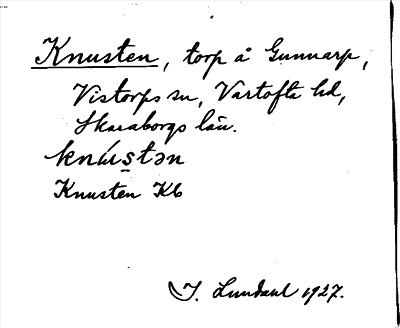 Knusten, torp å Gunnarp,
Vistorps sn, Vartofta hd,
Skaraborgs län.
knústən
Knusten Kb
J. Lundahl 1927.